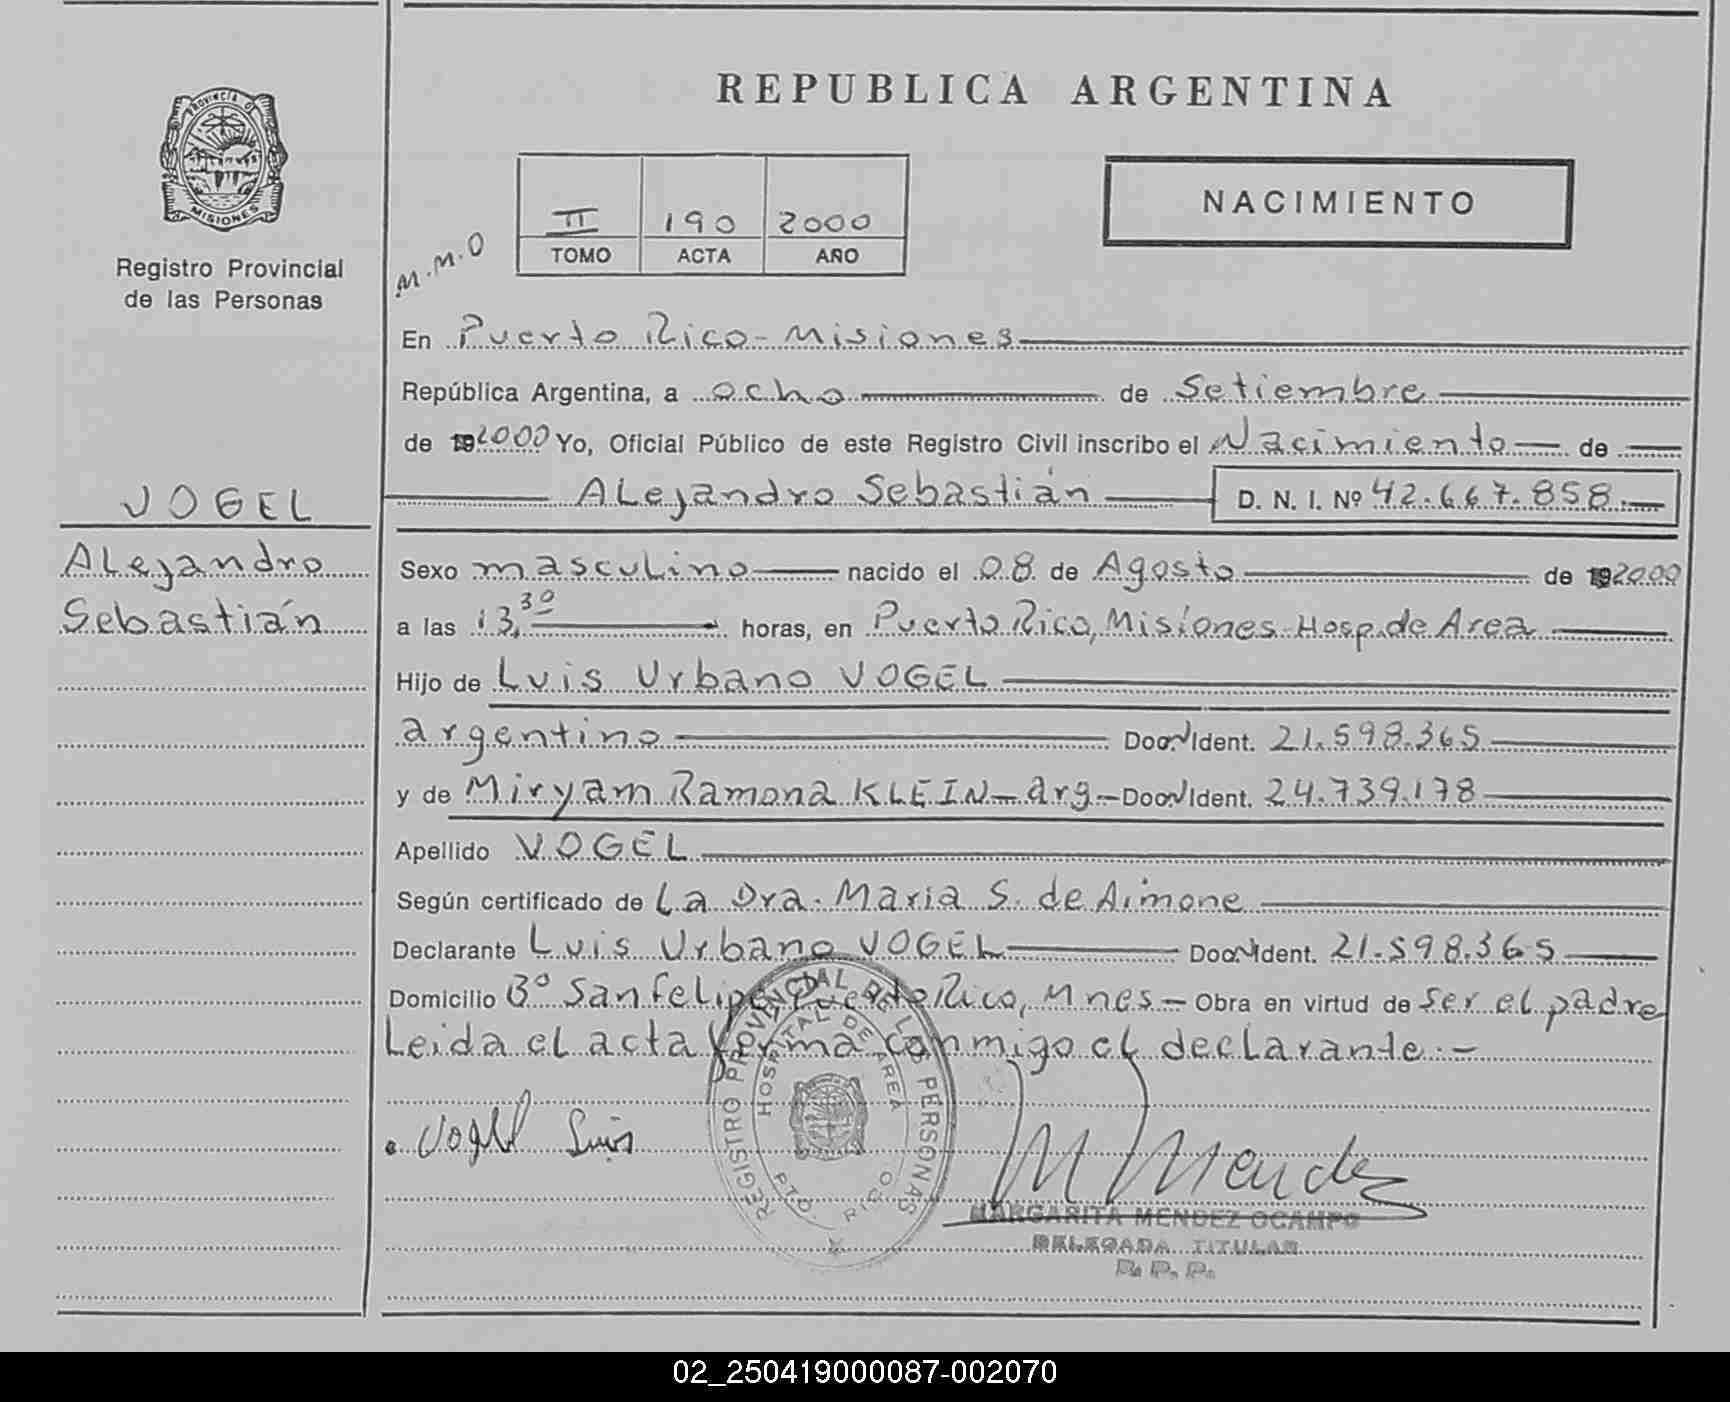 REPUBLICA ARGENTINA
PROVINCIA DE
MISIONES
Registro Provincial
de las Personas
II 190 2000
TOMO ACTA AÑO
NACIMIENTO
M.M.O
En Puerto Rico - Misiones
República Argentina, a ocho de Setiembre
de 192000 Yo, Oficial Público de este Registro Civil inscribo el Nacimiento de
ALejandro Sebastián D. N. I. Nº 42.667.858.
VOGEL
ALejandro
Sebastián
Sexo mascuLino nacido el 08 de Agosto de 192000
a las 13,30 horas, en Puerto Rico, Misiones-Hosp. de Area
Hijo de Luis Urbano VOGEL
argentino Doc. N Ident. 21.598.365
y de Miryam Ramona KLEIN - arg - Doc. N Ident. 24.739.178
Apellido VOGEL
Según certificado de La Dra. Maria S. de Aimone
Declarante Luis Urbano VOGEL Doc. N Ident. 21.598.365
Domicilio Bº San Felipe Puerto Rico, Mnes - Obra en virtud de ser el padre
Leida el acta firma conmigo el declarante.-
Vogel Luis
REGISTRO PROVINCIAL DE LAS PERSONAS
HOSPITAL DE AREA
PTO. RICO
M Mendez
MARGARITA MENDEZ OCAMPO
DELEGADA TITULAR
R. P. P.
02_250419000087-002070